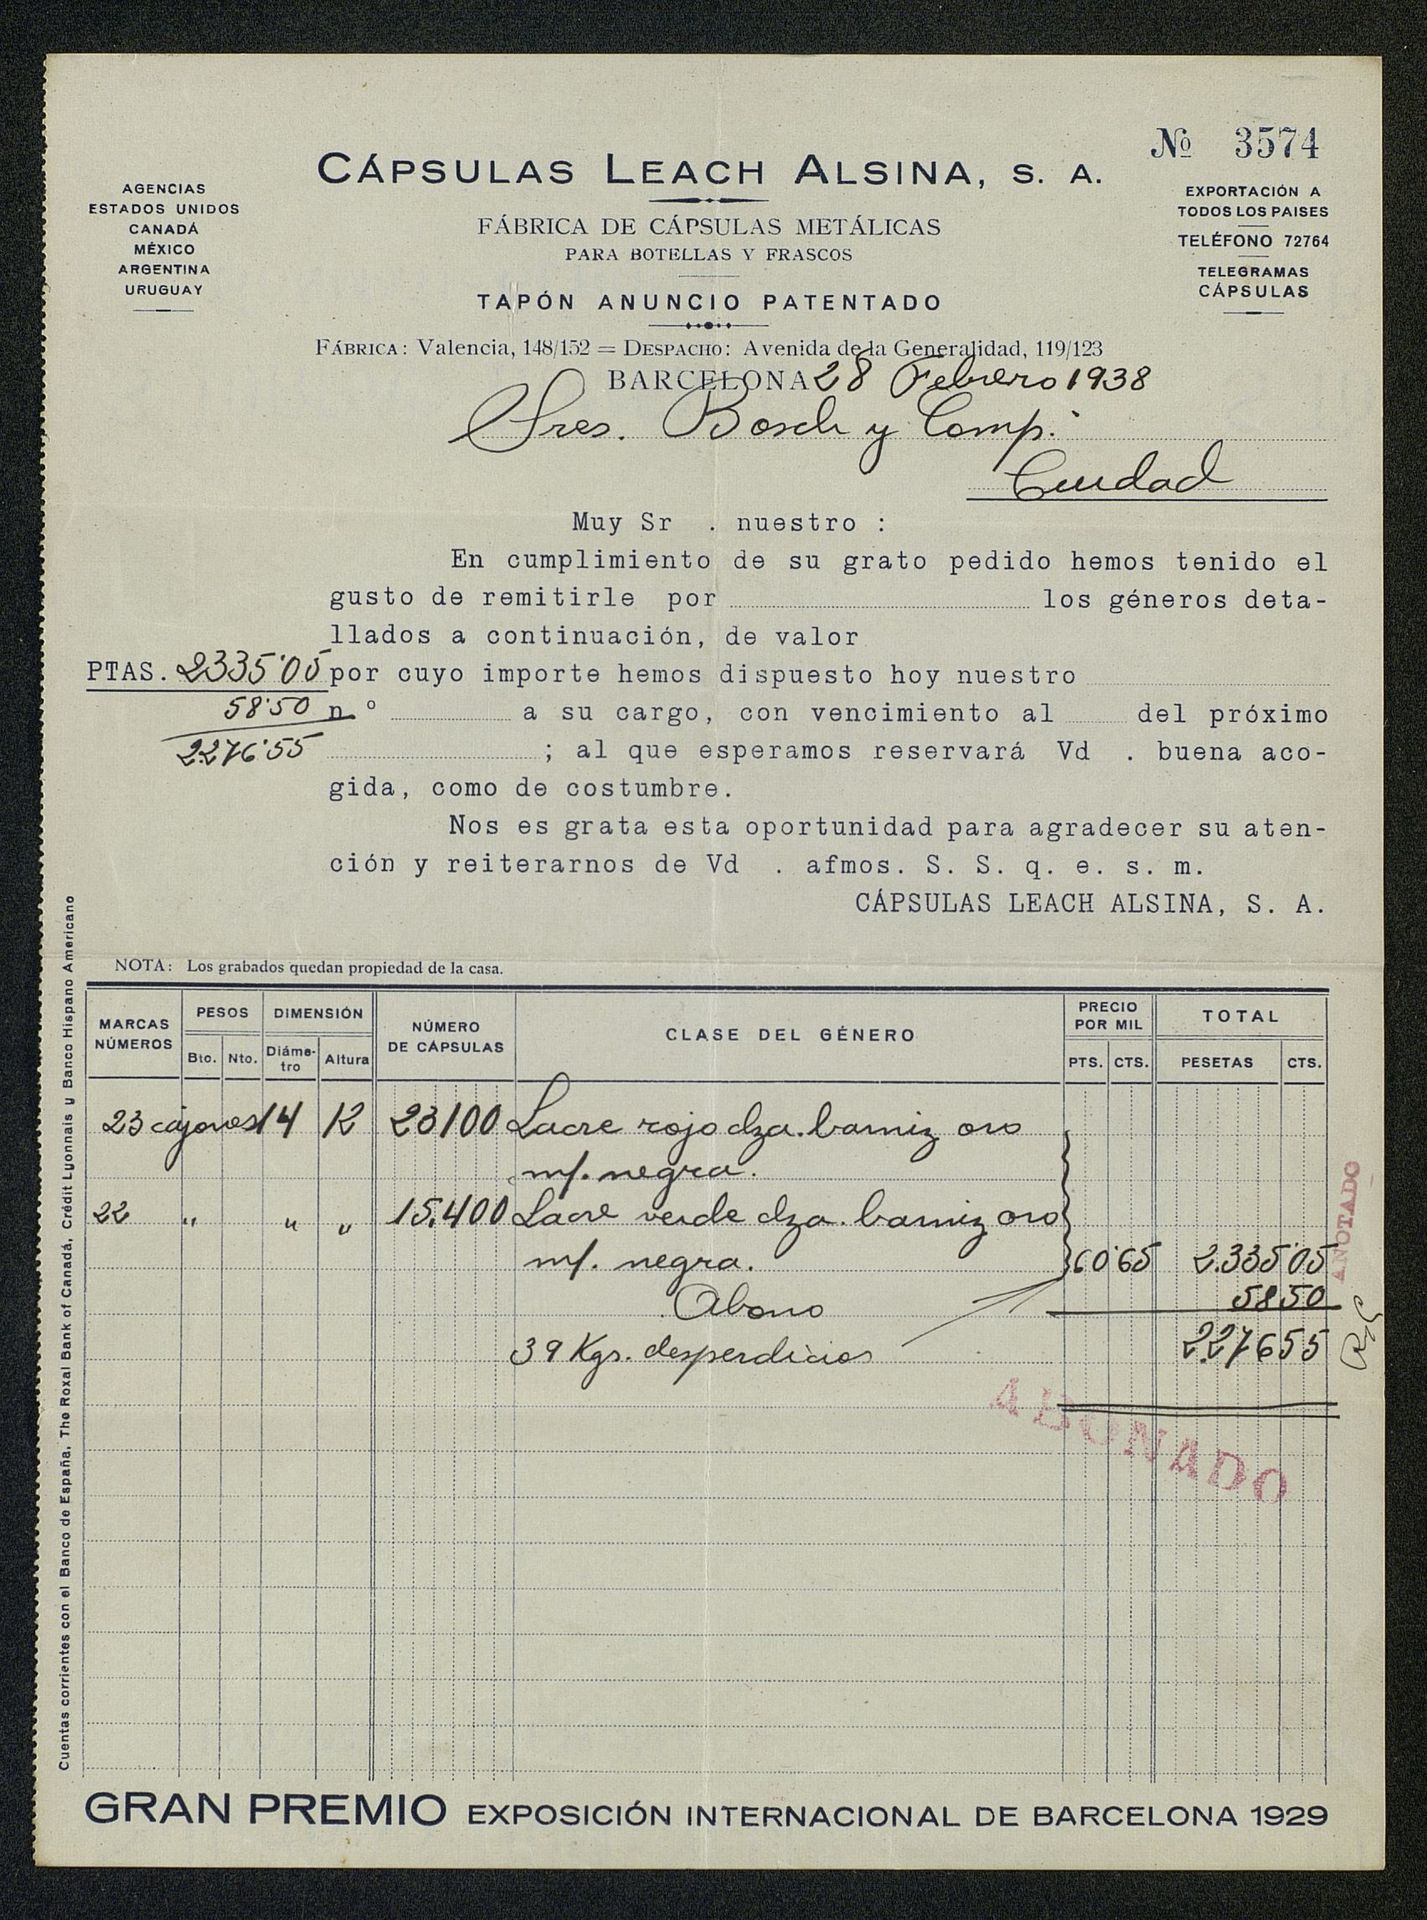 Nº 3574
CÁPSULAS LEACH ALSINA, S. A.
AGENCIAS
ESTADOS UNIDOS
CANADÁ
MÉXICO
ARGENTINA
URUGUAY
FÁBRICA DE CÁPSULAS METÁLICAS
PARA BOTELLAS Y FRASCOS
TAPÓN ANUNCIO PATENTADO
EXPORTACIÓN A
TODOS LOS PAISES
TELÉFONO 72764
TELEGRAMAS
CÁPSULAS
FÁBRICA: Valencia, 148/152 = DESPACHO: Avenida de la Generalidad, 119/123
BARCELONA 28 Febrero 1938
Sres. Bosch y Comp.
Ciudad
Muy Sr . nuestro :
En cumplimiento de su grato pedido hemos tenido el
gusto de remitirle por los géneros deta-
llados a continuación, de valor
PTAS. 2335'05 por cuyo importe hemos dispuesto hoy nuestro
58'50 n.º a su cargo, con vencimiento al del próximo
2276'55 ; al que esperamos reservará Vd . buena aco-
gida, como de costumbre.
Nos es grata esta oportunidad para agradecer su aten-
ción y reiterarnos de Vd . afmos. S. S. q. e. s. m.
CÁPSULAS LEACH ALSINA, S. A.
NOTA: Los grabados quedan propiedad de la casa.
MARCAS NÚMEROS PESOS DIMENSIÓN NÚMERO DE CÁPSULAS CLASE DEL GÉNERO PRECIO POR MIL TOTAL
Bto. Nto. Diáme-tro Altura PTS. CTS. PESETAS CTS.
23 cajones 14 12 23100 Lacre rojo dza. barniz oro
m/. negra.
22 " " " 15.400 Lacre verde dza. barniz oro
m/. negra. 60'65 2.335'05
Abono 58 50
39 Kgs. desperdicios 2.276 55
ABONADO
ANOTADO
Cuentas corrientes con el Banco de España, The Roxal Bank of Canadá, Crédit Lyonnais y Banco Hispano Americano
GRAN PREMIO EXPOSICIÓN INTERNACIONAL DE BARCELONA 1929